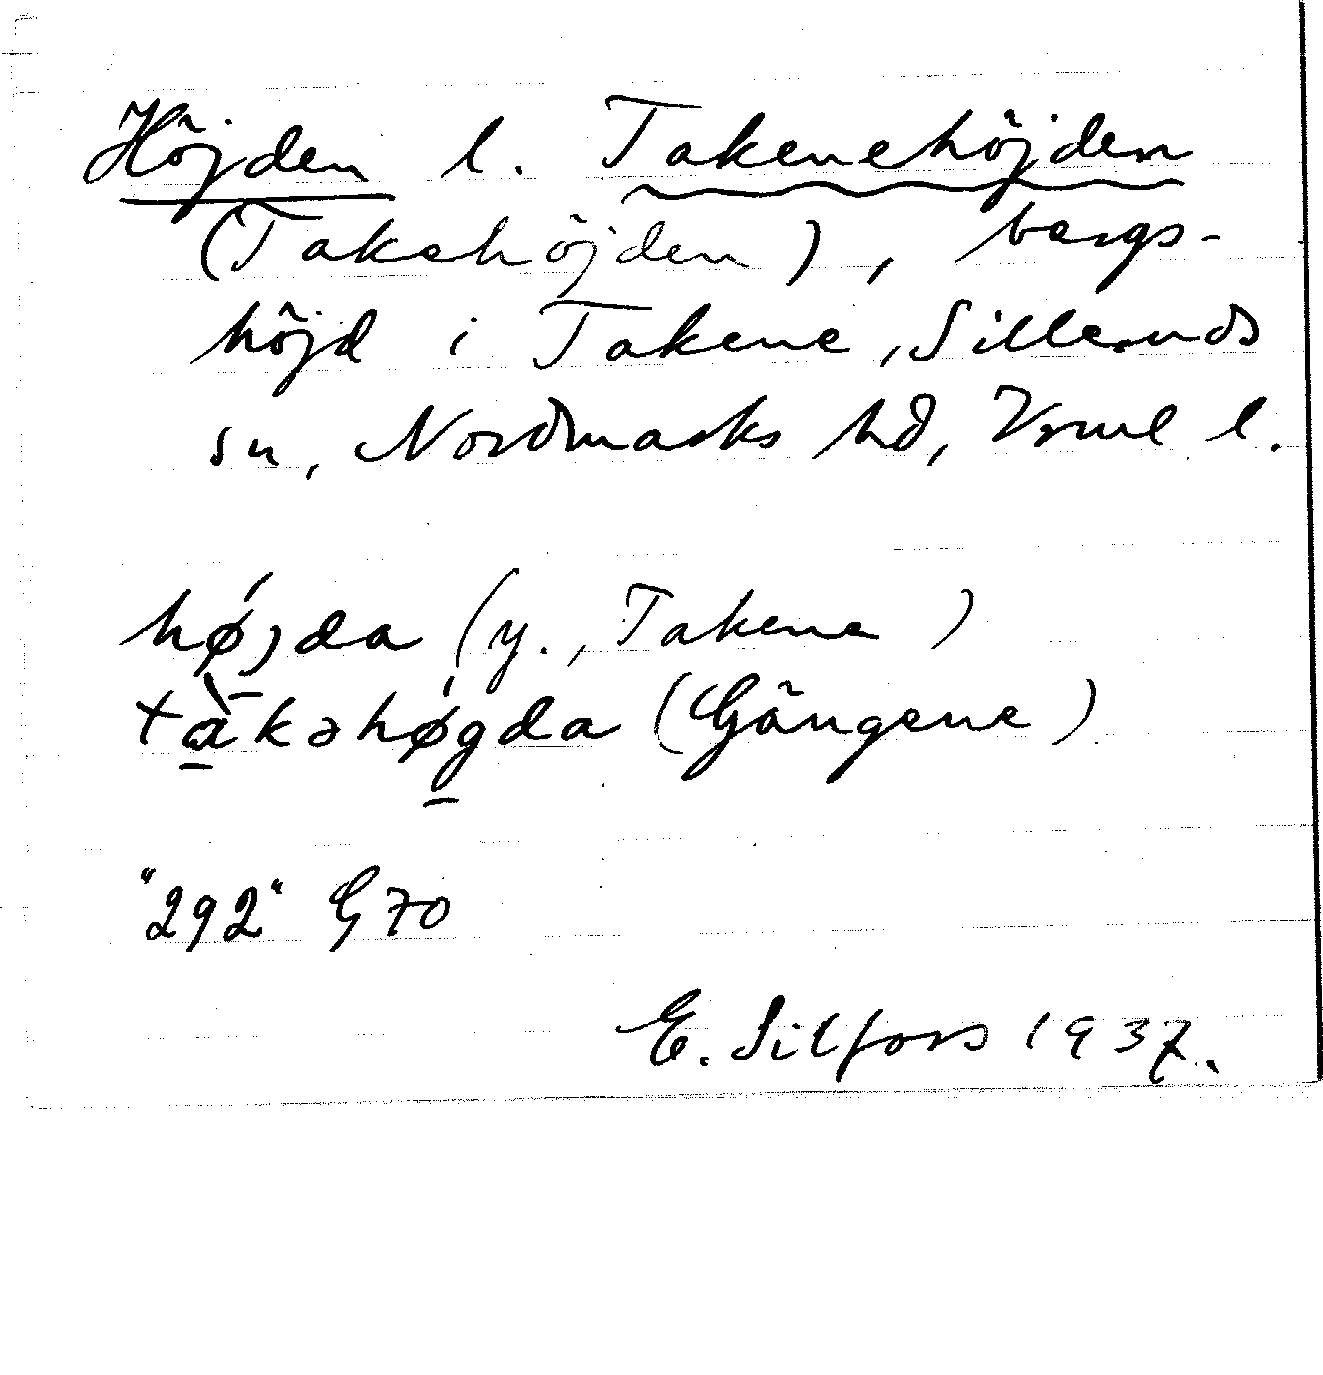 Höjden l. Takenehöjden
(Takehöjden), bergs-
höjd i Takene, Silleruds
sn, Nordmarks hd, Vrml l.
hǿjda (y., Takene)
tàkəhǿgda (Gängene)
"292" G 70
E. Silfors 1937.